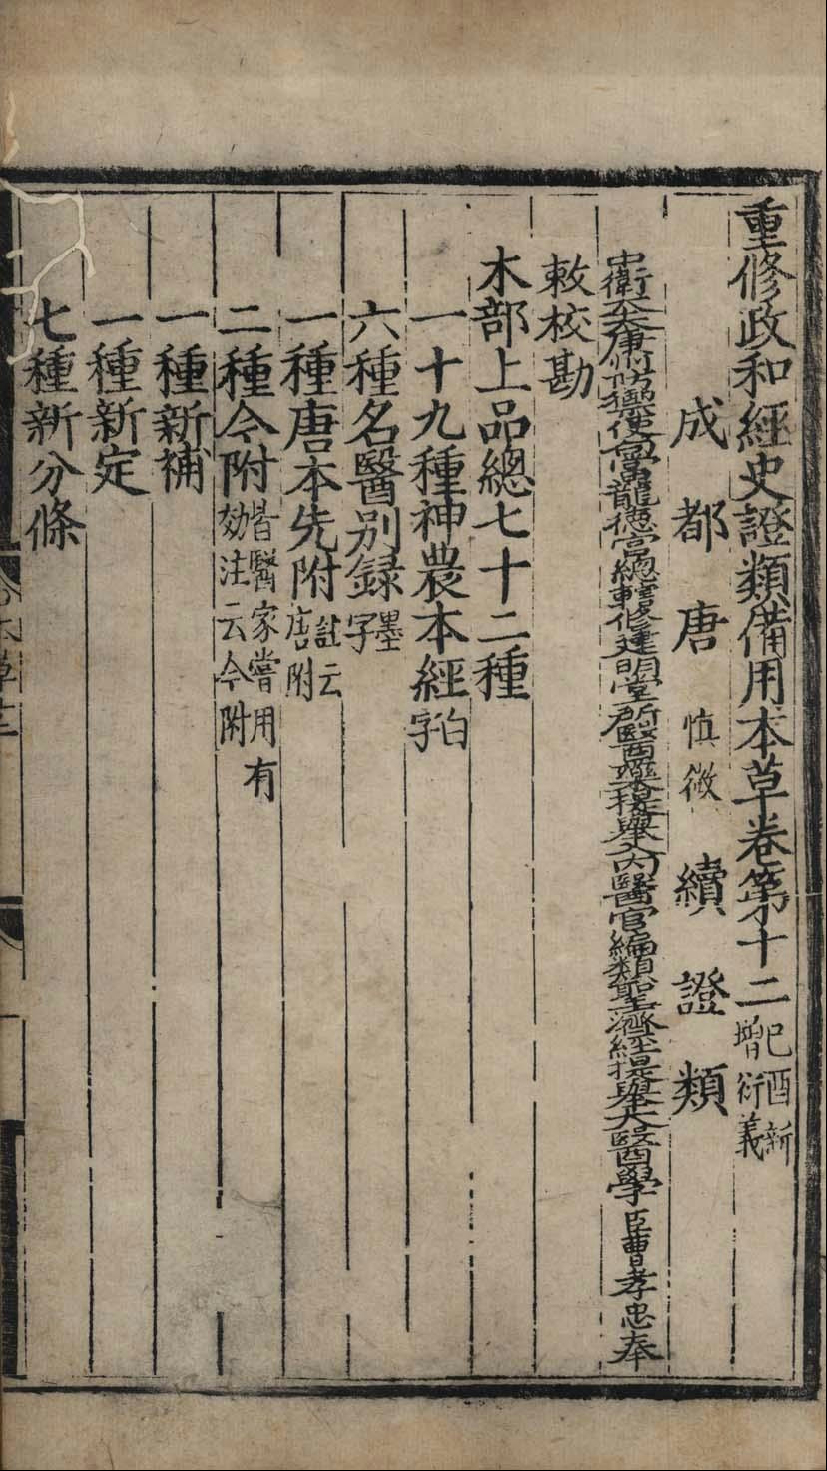 重修政和經史證類備用本草卷第十二 己酉新增衍義
成都唐 慎微 續證類
中衛大夫康州防禦使句當龍德宮總轄修建明堂所醫藥提舉入內醫官編類聖濟經提舉太醫學臣曹孝忠奉
敕校勘
木部上品總七十二種
一十九種神農本經 白字
六種名醫別録 墨字
一種唐本先附 註云唐附
二種今附 皆醫家嘗用有効注云今附
一種新補
一種新定
七種新分條